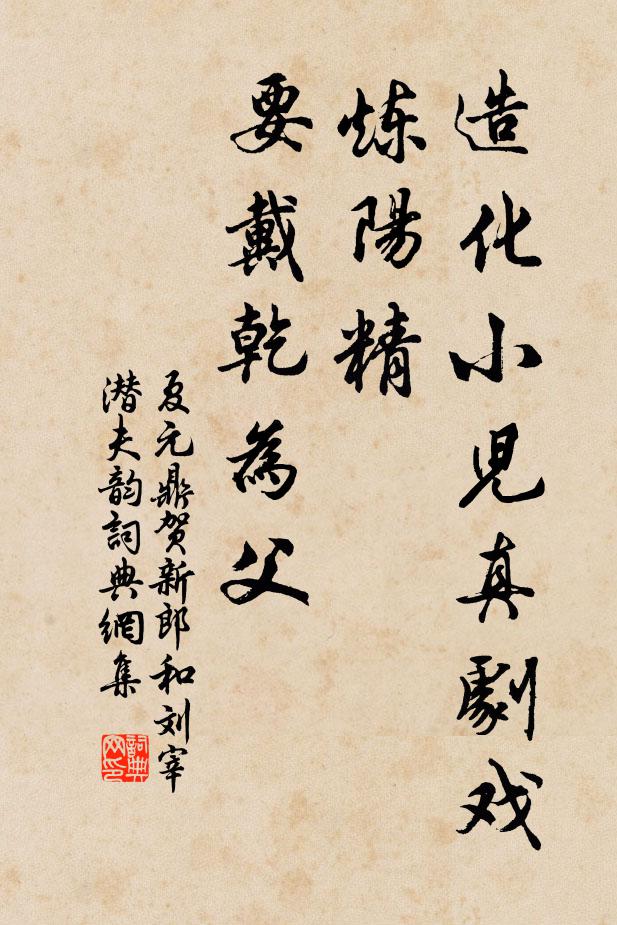 造化小児真劇戏
炼陽精
要戴乾為父
夏元鼎贺新郎和刘宰
潜夫韵詞典網集
詞典
网印